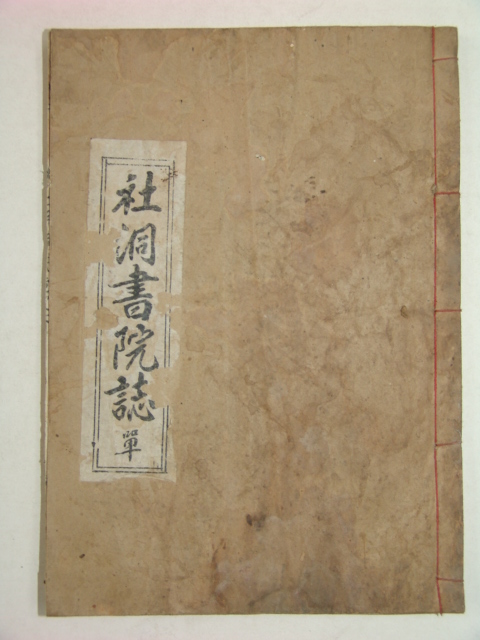 社洞書院誌 單